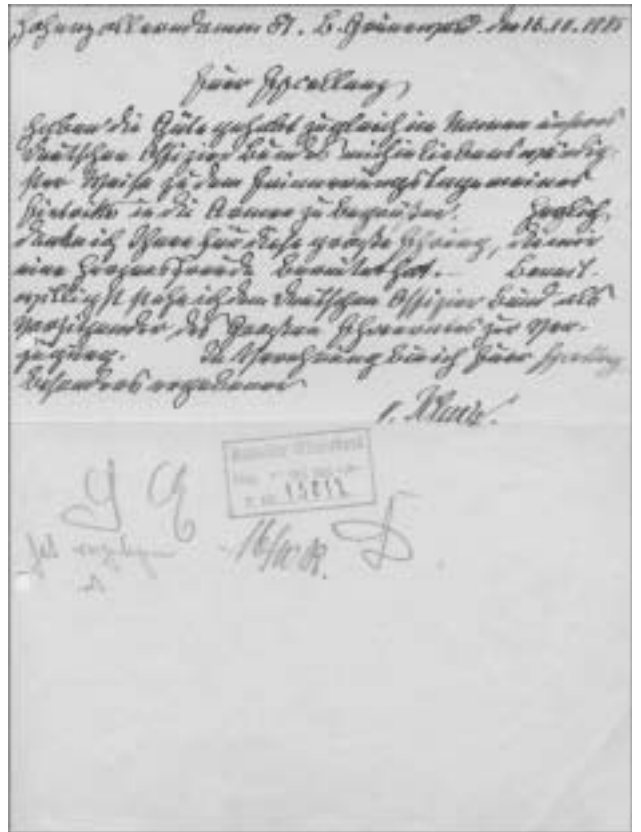 Hohenzollerndamm 81. B. Grunewald. den 16.10.
Euer Excellenz,
haben die Güte gehabt zugleich im Namen unseres
Deutschen Offizier Bundes mich in liebenswürdig-
ster Weise zu dem Erinnerungstage meines
Eintritts in die Armee zu begrüßen.
danke ich Ihnen für diese große Ehrung, die mir
eine Herzensfreude bereitet hat. Bereit-
willigst stehe ich dem Deutschen Offizier Bund als
Vorsitzender des Großen Ehrenrates zur Ver-
fügung. In Verehrung bin ich Euer
besonders ergebener
v.